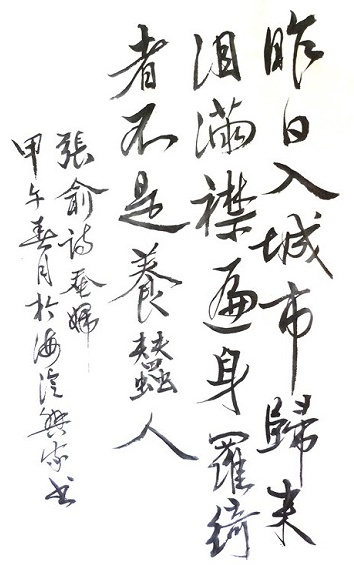 昨日入城市歸来
泪滿襟遍身羅綺
者不是養蠶人
張俞詩蚕婦
甲午春月於海书